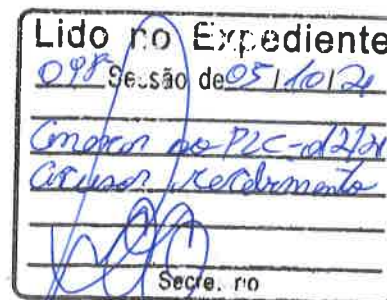 Lido no Expediente
098 Sessão de 05/10/21
Anexar ao PLC-
acusar recebimento
Secre. rio